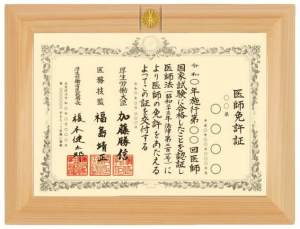 医師免許証
〇〇〇〇
令和〇年施行第〇〇回医師
国家試験に合格したことを認証し
医師法(昭和二十三年法律第二百一号)に
より医師の免許をあたえる
よってこの証を交付する
厚生労働大臣
加藤勝信
医務技監
福島靖正